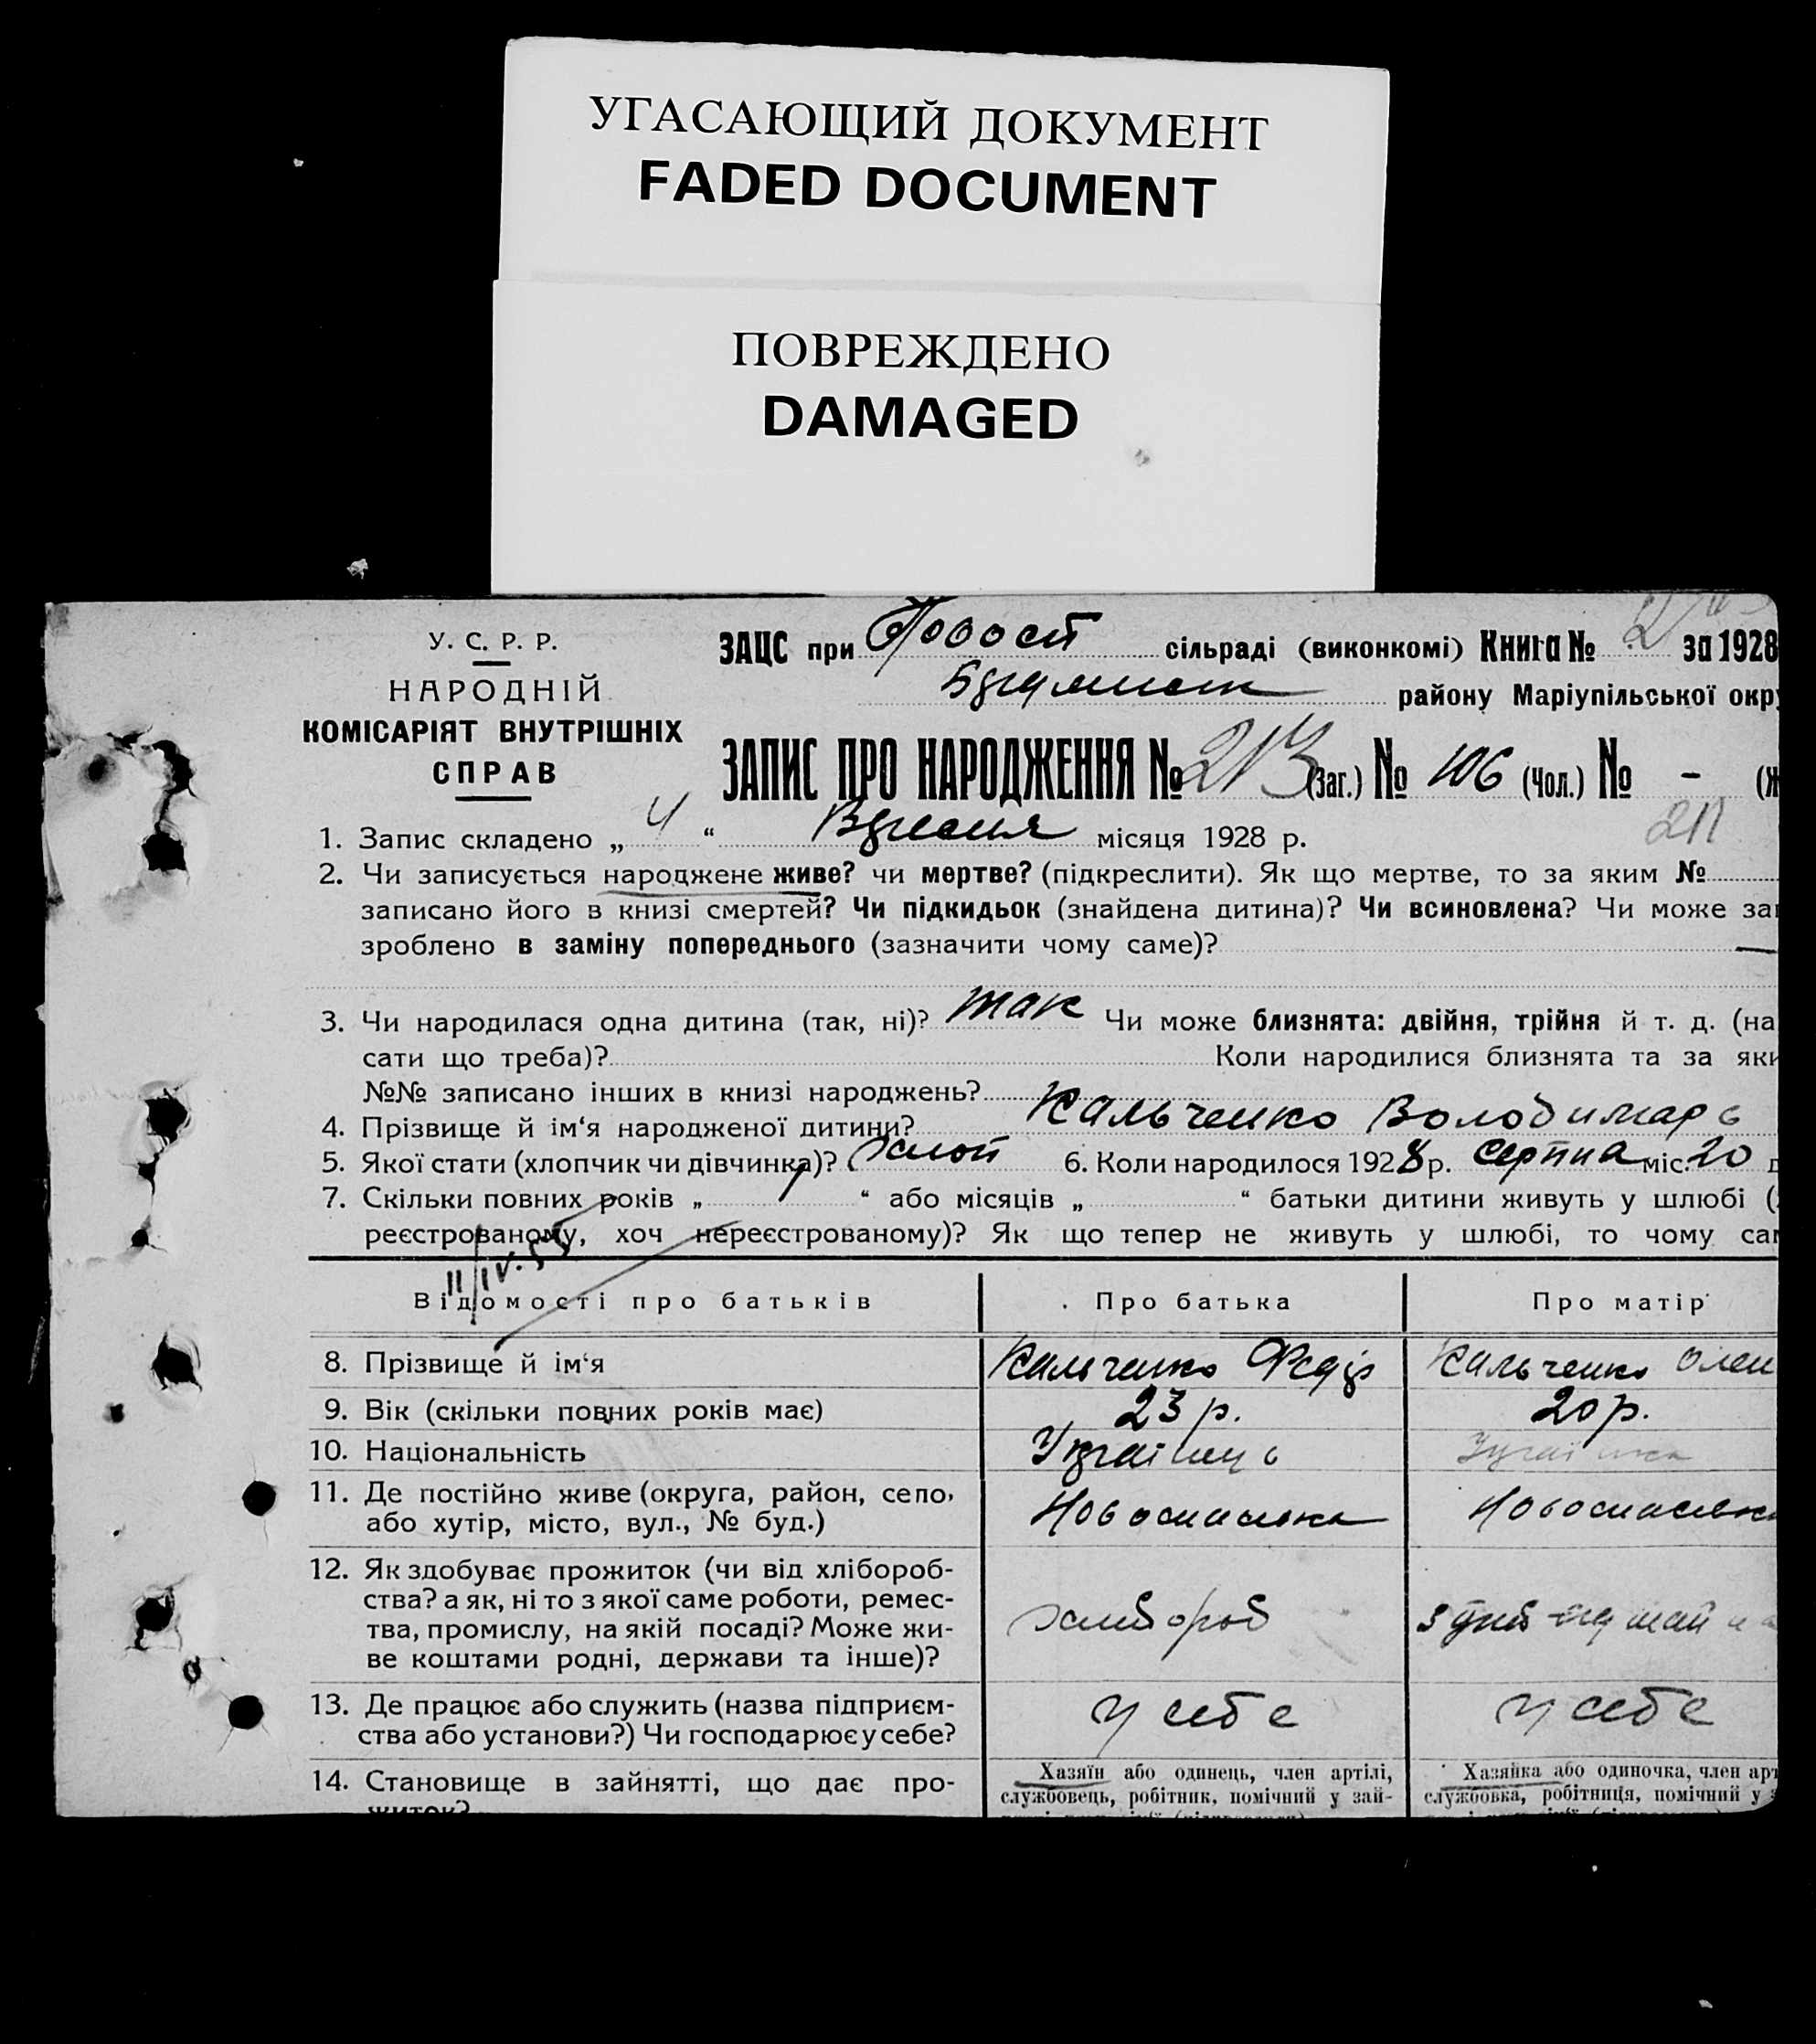 УГАСАЮЩИЙ ДОКУМЕНТ
FADED DOCUMENT
ПОВРЕЖДЕНО
DAMAGED
У. С. Р. Р.
НАРОДНІЙ
КОМІСАРІЯТ ВНУТРІШНІХ
СПРАВ
ЗАЦС при сільраді (виконкомі) Книга № 2 за 1928
району Маріупільської окру
ЗАПИС ПРО НАРОДЖЕННЯ № 213 (Заг.) № 106 (Чол.) № - (Ж
211
1. Запис складено „ 4 “ Вересня місяця 1928 р.
2. Чи записується народжене живе? чи мертве? (підкреслити). Як що мертве, то за яким №
записано його в книзі смертей? Чи підкидьок (знайдена дитина)? Чи всиновлена? Чи може за
зроблено в заміну попереднього (зазначити чому саме)? —
3. Чи народилася одна дитина (так, ні)? так Чи може близнята: двійня, трійня й т. д. (на
сати що треба)? Коли народилися близнята та за яки
№№ записано інших в книзі народжень?
4. Прізвище й ім‘я народженої дитини? Кальченко Володимарь
5. Якої стати (хлопчик чи дівчинка)? Хлоп 6. Коли народилося 1928 р. серпна міс. 20 д
7. Скільки повних років „ 1 “ або місяців „ “ батьки дитини живуть у шлюбі (
реєстрованому, хоч нереєстрованому)? Як що тепер не живуть у шлюбі, то чому са
Відомості про батьків Про батька Про матір
8. Прізвище й ім‘я Кальченко Федір Кальченко Олен
9. Вік (скільки повних років має) 23 р. 20 р.
10. Національність Українць Українка
11. Де постійно живе (округа, район, село,
або хутір, місто, вул., № буд.) Новоспасівка Новоспасівка
12. Як здобуває прожиток (чи від хлібороб-
ства? а як, ні то з якої саме роботи, ремес-
тва, промислу, на якій посаді? Може жи- хлібороб
ве коштами родні, держави та інше)?
13. Де працює або служить (назва підприєм-
ства або установи?) Чи господарює у себе? у себе у себе
14. Становище в зайнятті, що дає про-
житок?
Хазяїн або одинець, член артілі,
службовець, робітник, помічний у зай-
Хазяйка або одиночка, член арт
службовка, робітниця, помічний у з